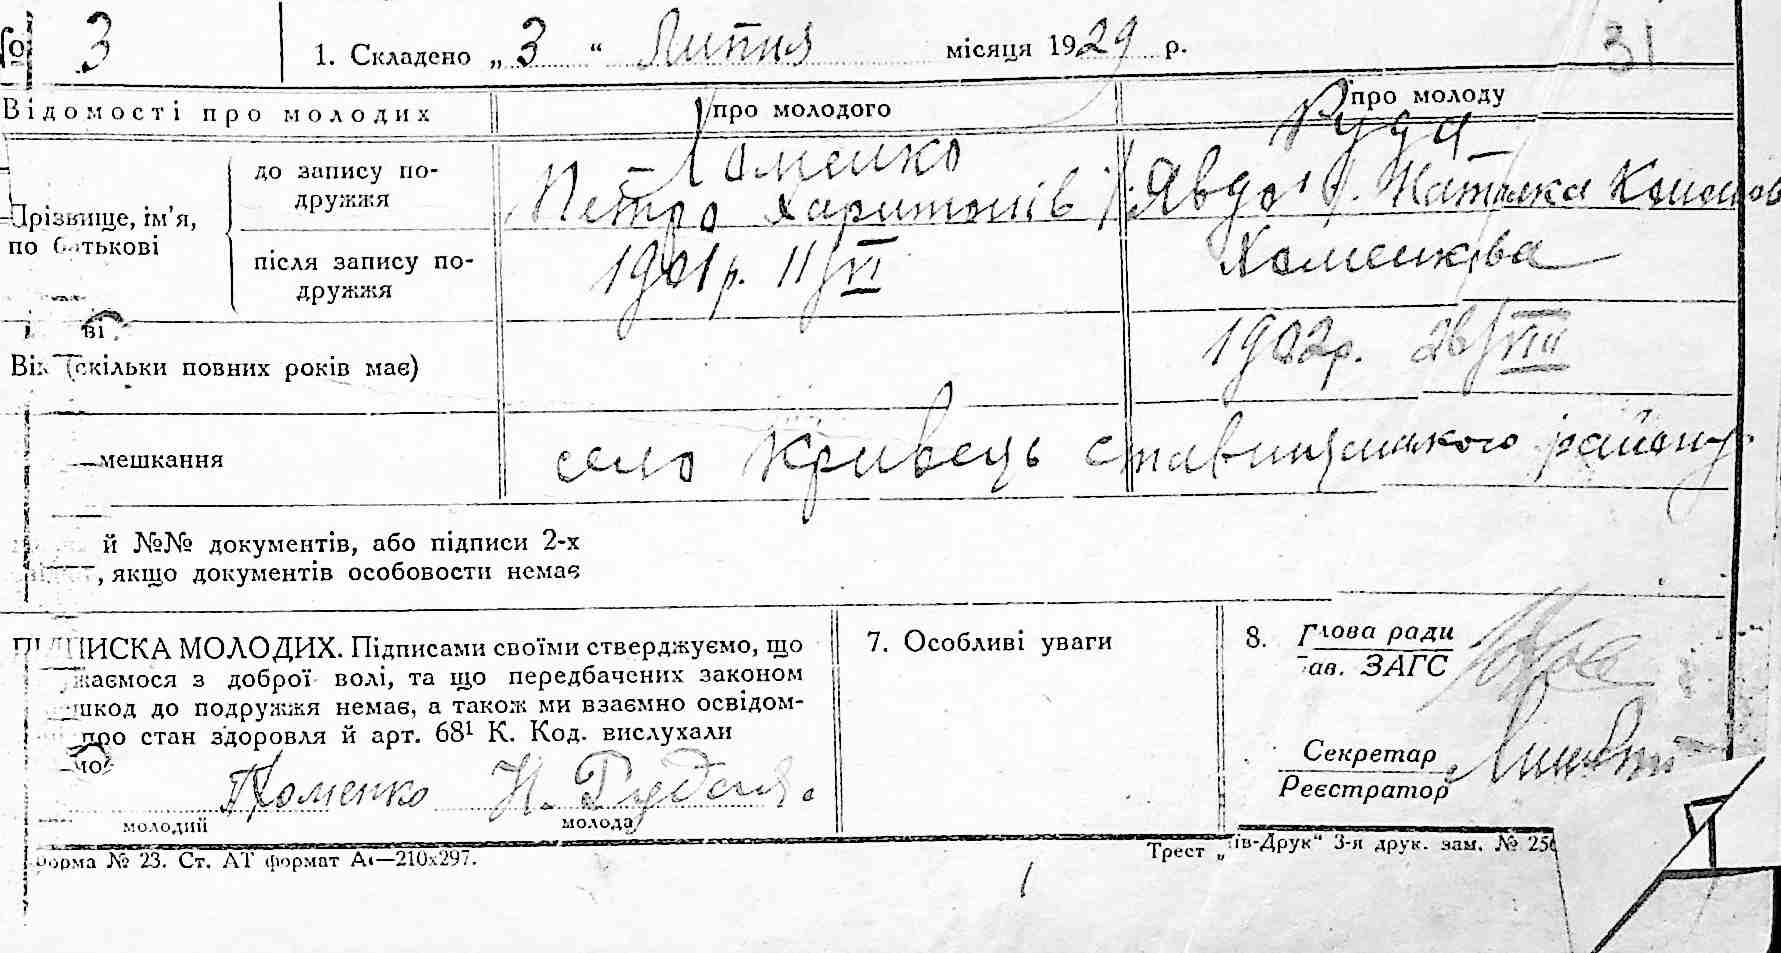 № 3 1. Складено „ 3 “ Липня місяця 1929 р. 31
Відомості про молодих про молодого про молоду
Прізвище, ім'я, по батькові
до запису подружжя
Хоменко Руда
Петро Харитонів Явдо Наталка
після запису по-
дружжя
1901р. 11/VI Хоменкова
ві
Вік (скільки повних років має) 1902р. 26/VIII
мешкання село Кривець ставищанського району.
й №№ документів, або підписи 2-х
, якщо документів особовости немає
ПІДПИСКА МОЛОДИХ. Підписами своїми стверджуємо, що
жаємося з доброї волі, та що передбачених законом
шкод до подружжя немає, а також ми взаємно освідом-
про стан здоровля й арт. 68¹ К. Код. вислухали
мо
ПХоменко Н. Руда
молодий молода
7. Особливі уваги
8. Голова ради
Зав. ЗАГС
Секретар
Реєстратор
Форма № 23. Ст. АТ формат А4—210х297.
Трест „Київ-Друк“ 3-я друк. зам. № 256